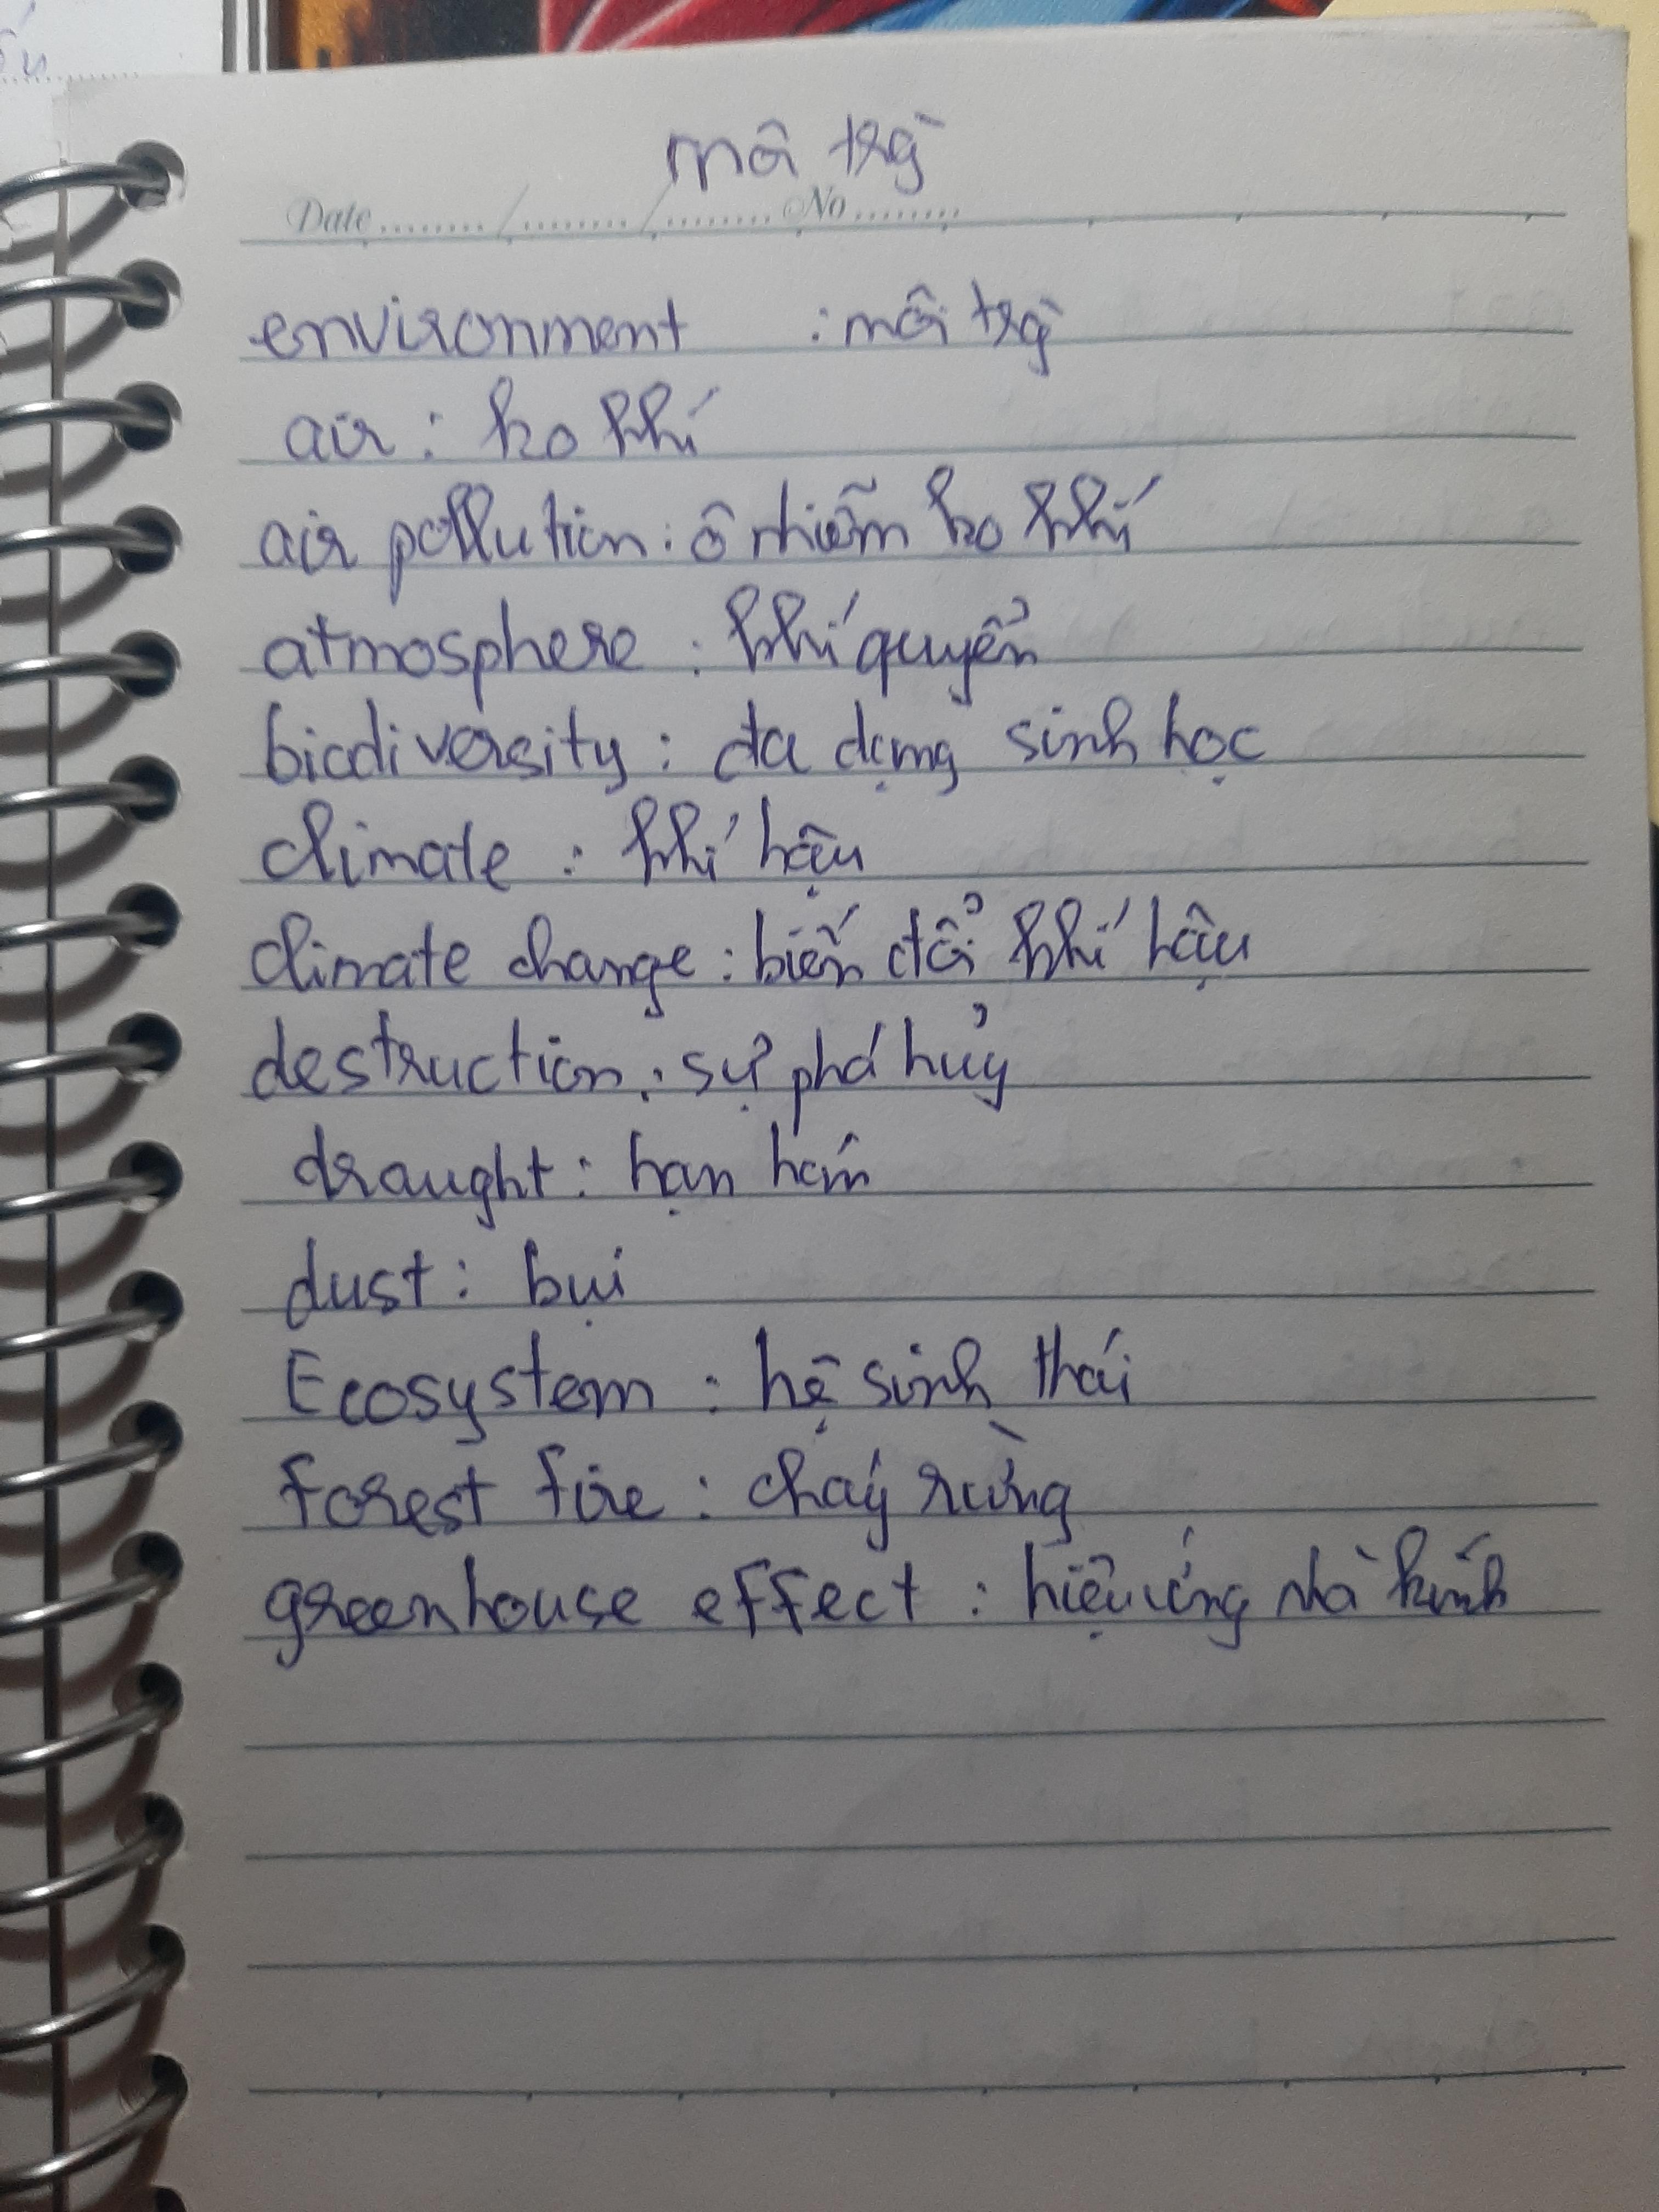 môi trg̀
Date ......../......../........ No ........
environment : môi trg̀
air : ko khí
air pollution : ô nhiễm ko khí
atmosphere : khí quyển
biodiversity : đa dạng sinh học
climate : khí hậu
climate change : biến đổi khí hậu
destruction : sự phá hủy
draught : hạn hán
dust : bụi
Ecosystem : hệ sinh thái
forest fire : cháy rừng
greenhouse effect : hiệu ứng nhà kính